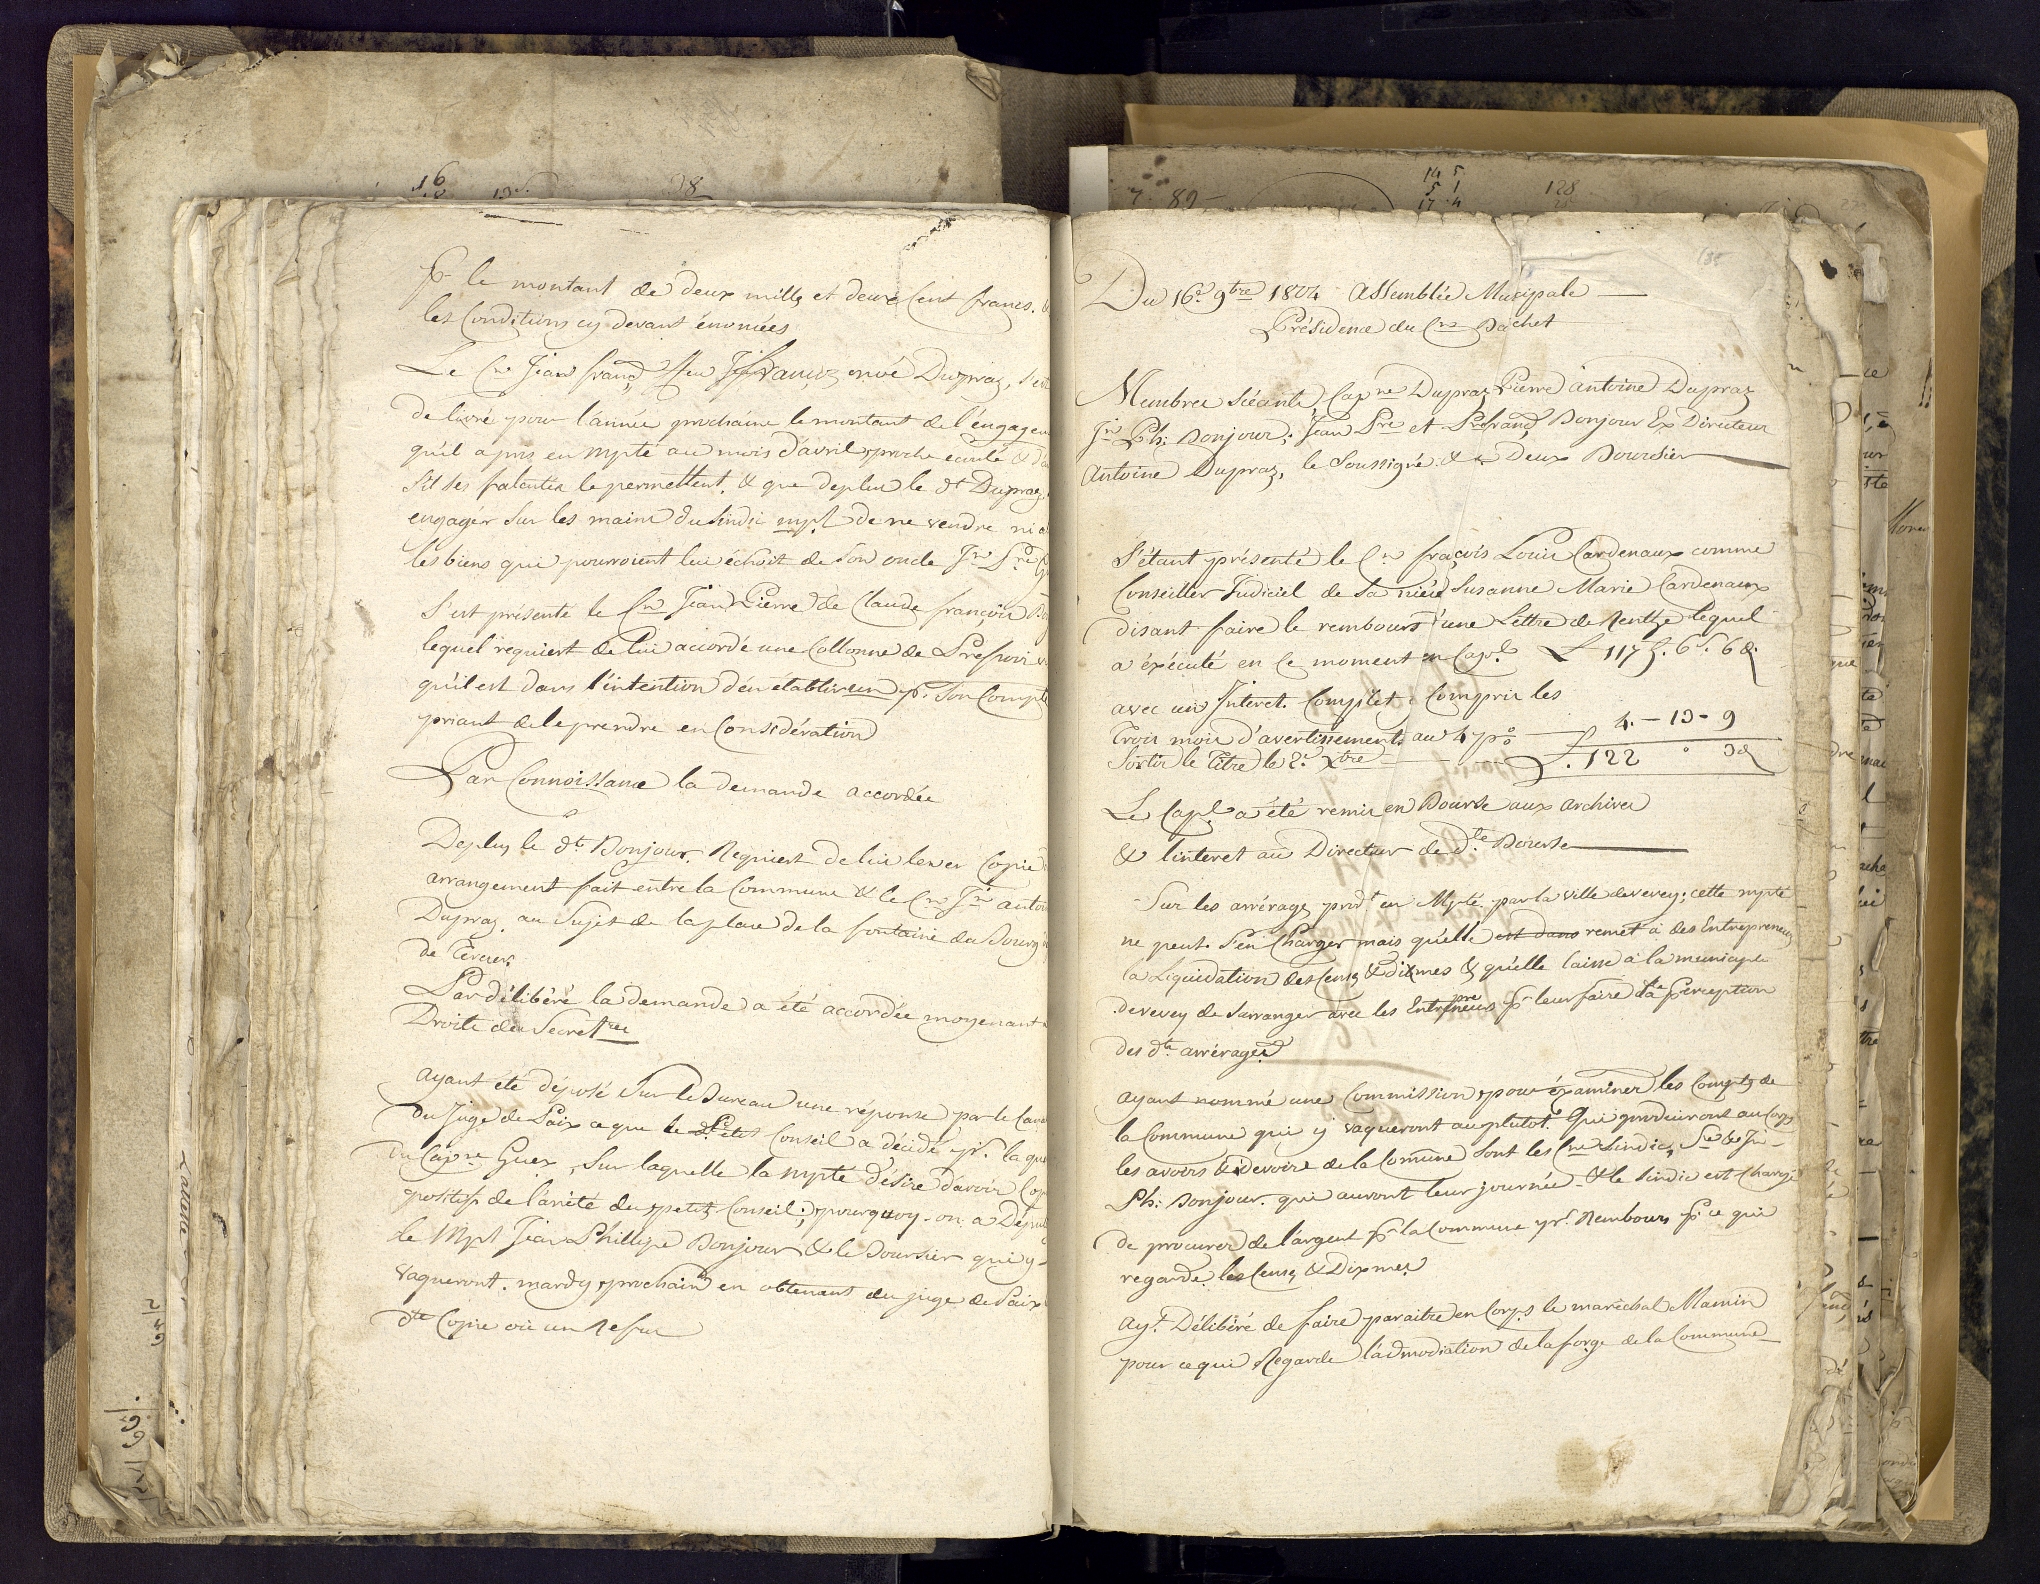 pr le montant de deux mille et deux Cent francs. &
les Conditions cy devant énoncées
Le Cn Jean franç ffeu Jn François noé Dupraz, s'est
de livré pour l'année prochaine le montant de l'engagem
qu'il a pris en mpté au mois d'avril proche écoulé &
Si les fatentes le permettent. & que de plus le dt Dupraz
engager Sur les mains du Sindic mpl de ne vendre ni
les biens qui pourroient lui échoit de Son oncle Jn Pre
S'est présenté le Cn Jean Pierre de Claude françois
lequel requiert de lui accordé une Collonne de Pressoir
qu'il est dans l'intention d'en etablir un pr. Son Compte
priant de le prendre en Considération
Par Connoissance la demande accordée
De plus le dt Bonjour. Requiert de lui lever Copie
arrangement fait entre la Commune & le Cn Jn antoi
Dupraz. au Sujet de la place de la fontaine du Bourg
de Tercier.
Par délibéré la demande a été accordée moyenant
Droits du Secretre
ayant été déposé Sur le Bureau une réponse par le Cana
du Juge de Paix ce que le Conseil a décidé pr. la que
du Capne Guex, Sur laquelle la mpté désire d'avoir Cop
positif de l'arrêté du petit Conseil; pourquoy on a Déput
le Mpl Jean Phillipe Bonjour & le Boursier qui y
vaqueront. mardy prochain en obtenant du juge de Paix
dte Copie où un Refus
Du 16e. 9bre 1804 Assemblée Municipale
Présidence du Cn Dachet
Membres Séants, Capne Dupraz, Pierre Antoine Dupraz
Jn Ph: Bonjour, Jean Pre et Pre franç Bonjour Ex Directeur
Antoine Dupraz, le Soussigné. & Deux Boursier
S'étant présenté le Cn fraçois Louis Cardenaux comme
Conseiller Judiciel de Sa niéce Susanne Marie Cardenaux
disant faire le rembours d'une Lettre de Renthe lequel
a éxécuté en Ce moment en Capl. L 117 f. 6 s. 6 d.
avec un Interet. Complet. Compris les
Trois mois d'avertissements au 4 p% 4. - 13 - 9
Sortir le Titre le 2e. Xbre L. 122 ° 3 d
Le Capl. a été remis en Bourse aux archives
& l'interet au Directeur de dte Bourse
Sur les arrérages prdt en Mpté par la ville de vevey; cette mpté
ne peut S'en Charger mais qu'elle est dans remet à des Entrepreneurs
la Liquidation des Cens & dixmes & qu'elle laisse à la municipte
de vevey de S'arranger avec les Entrepreneurs pr leur faire la perception
des dts arrérages
ayant nommé une Commission pour éxaminer les Comptes de
la Commune qui y vaqueront au plutot. Qui produiront au Corps
les avoirs & devoirs de la Comune Sont les Cns Sindic, Secre Jn
Ph: Bonjour. qui auront leur journée. & le Sindic est Chargé
de procurer de l'argent pr la Commune pr. Rembours pr ce qui
regarde les Cens & Dixmes
Ayt. Délibéré de faire paraitre en Corps le maréchal Mamin
pour ce qui Regarde l'admodiation de la forge de la Commune